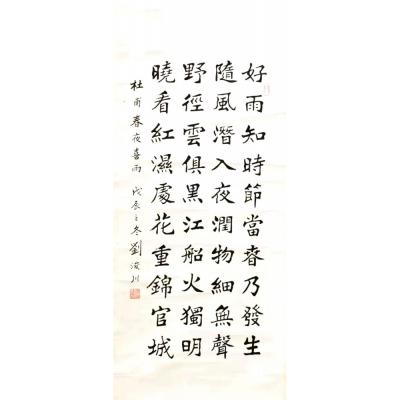 好雨知時節當春乃發生
隨風潛入夜潤物細無聲
野徑雲俱黑江船火獨明
曉看紅濕處花重錦官城
杜甫春夜喜雨 戊辰之冬劉浚川